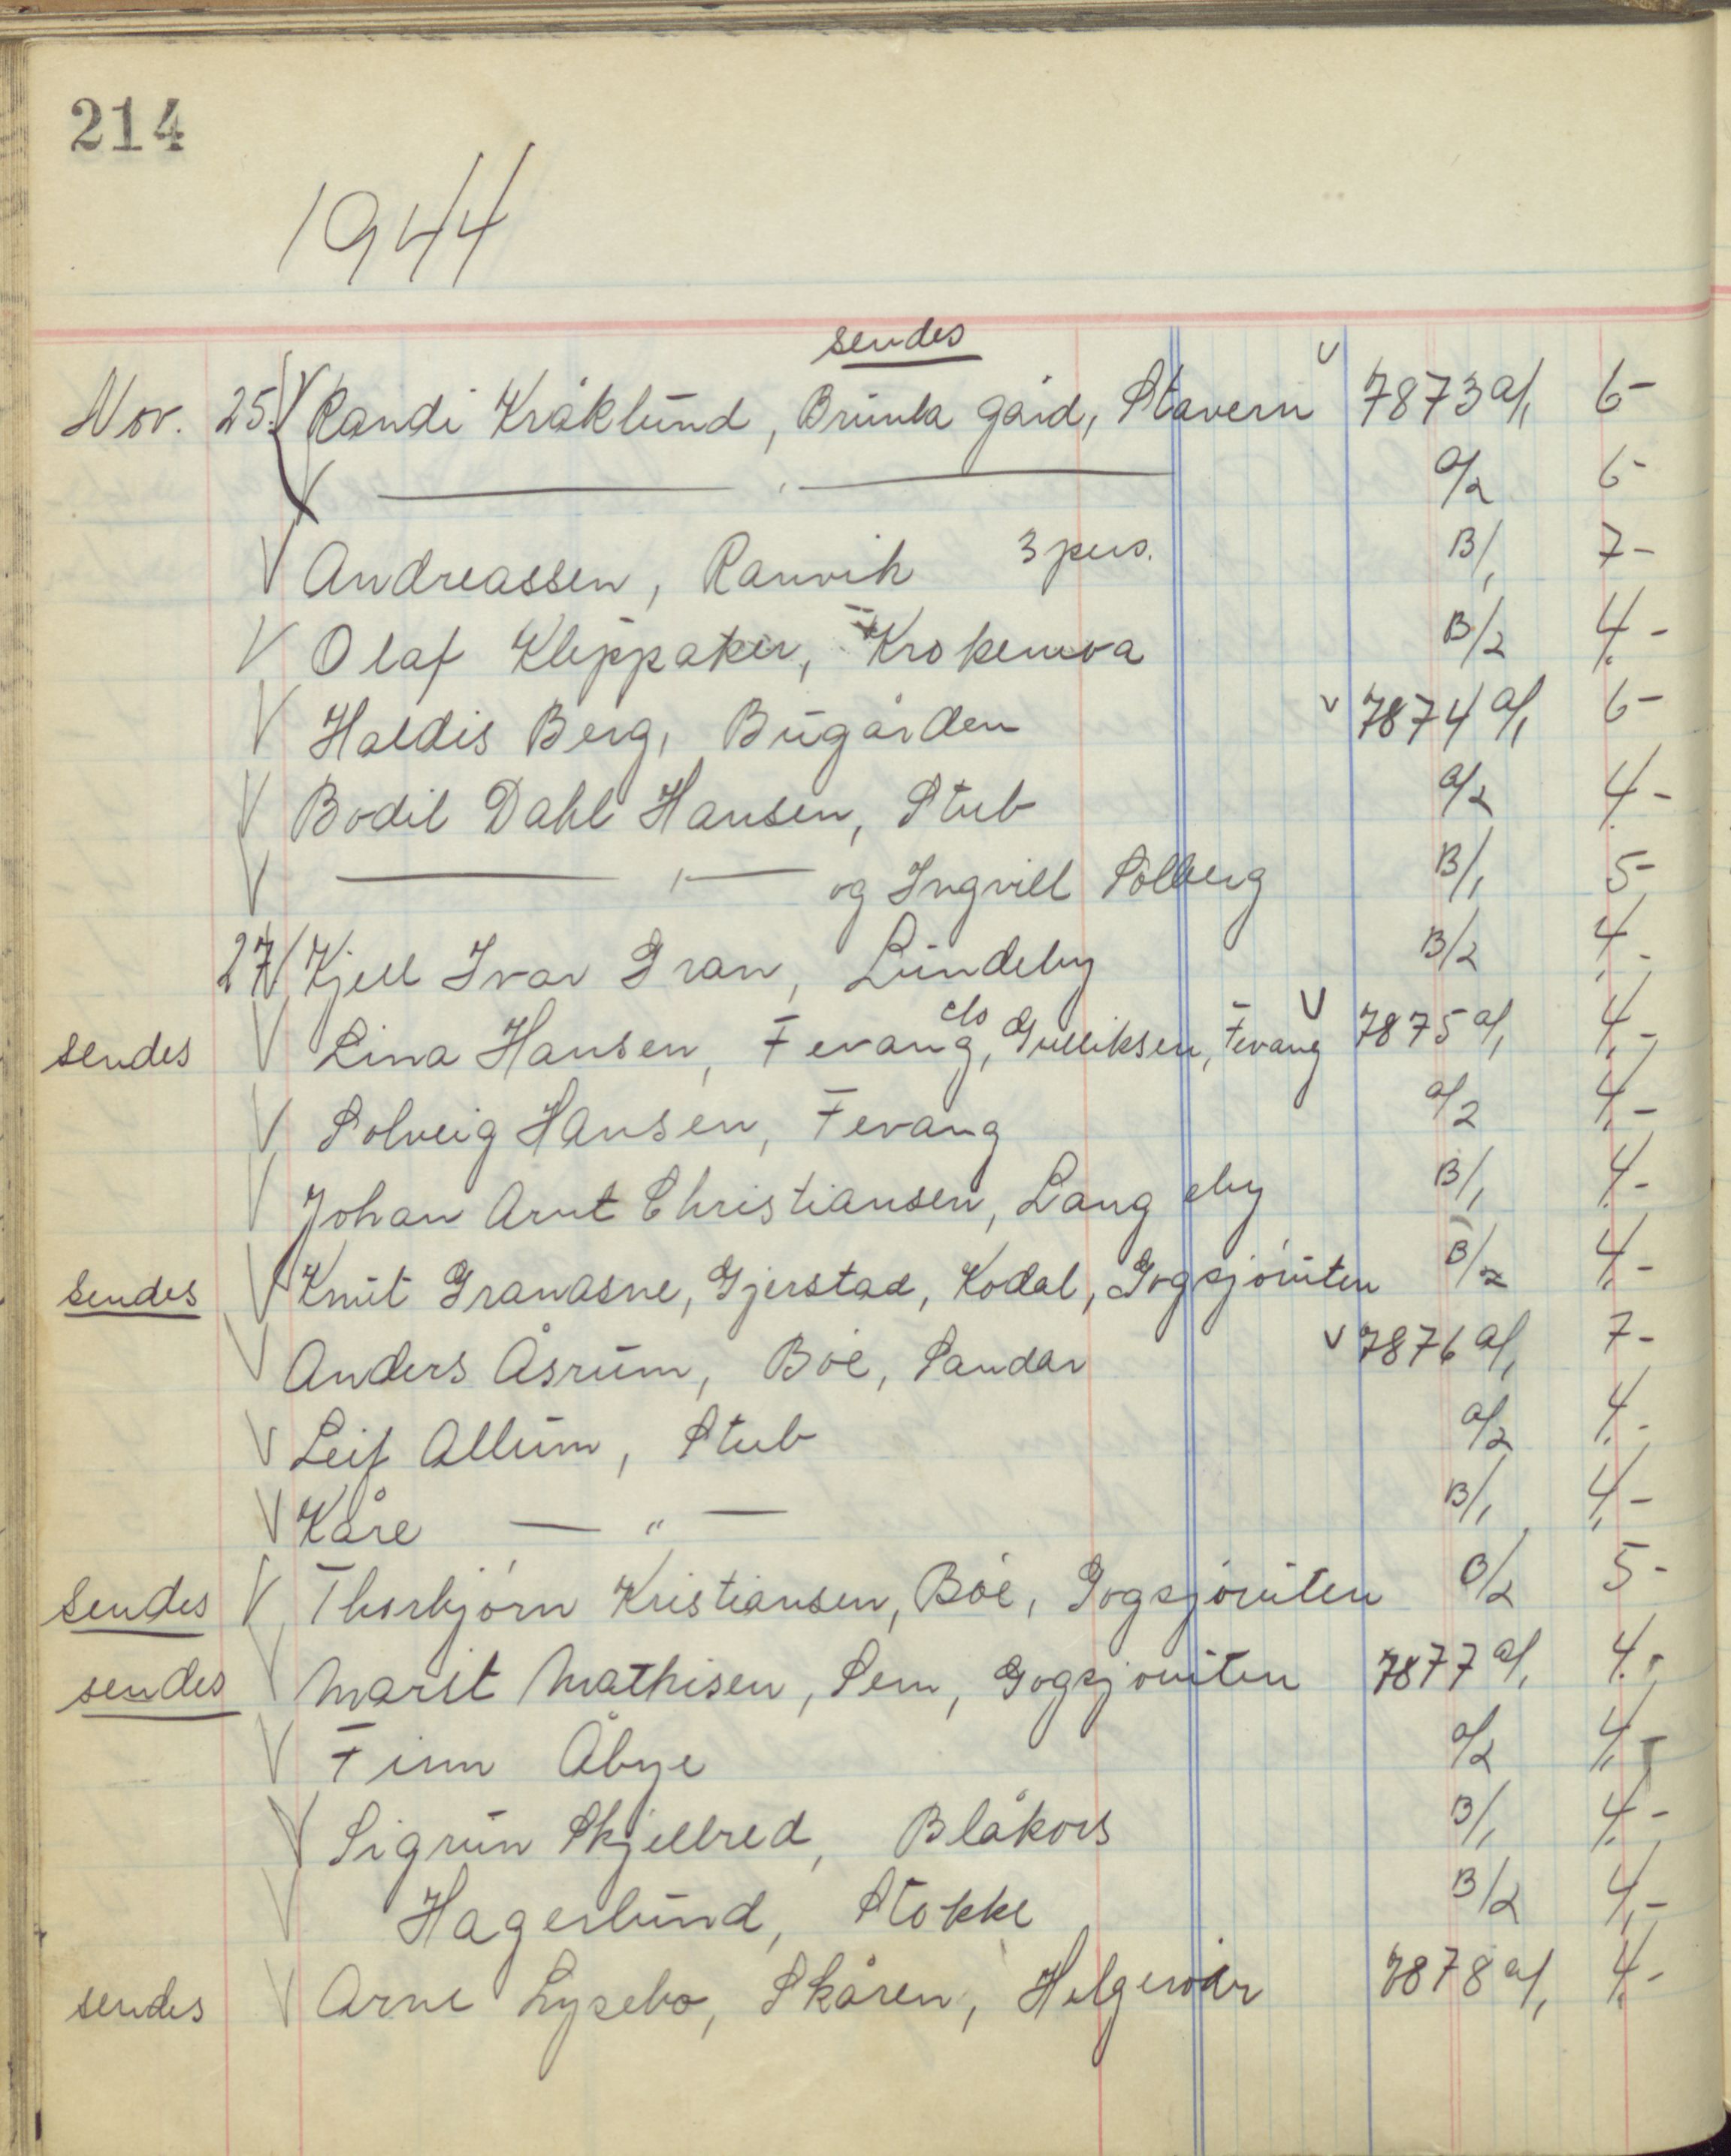 214
1944
sendes
Nov. 25. V Randi Kråklund, Brunla gård, Stavern V 7873 a/1 6-
V — " — a/2 6-
V Andreassen, Ranvik 3 pers. B/1 7-
V Olaf Kleppaker, Krokemoa B/2 4.-
V Haldis Berg, Bugården V 7874 a/1 6-
V Bodil Dahl Hansen, Stub a/2 4.-
V — " — og Ingvill Solberg B/1 5-
27 V Kjell Ivar Gran, Lundeby B/2 4.-
sendes V Lina Hansen, Fevang, c/o Gulliksen, Fevang V 7875 a/1 4.-
V Solveig Hansen, Fevang a/2 4.-
V Johan Arnt Christiansen, Langeby B/1 4.-
sendes V Knut Granasne, Gjerstad, Kodal, Gogsjøruten B/2 4.-
V Anders Åsrum, Bøe, Sandar V 7876 a/1 7-
V Leif Allum, Stub a/2 4.-
V Kåre — " — B/1 4.-
sendes V Thorbjørn Kristiansen, Bøe, Gogsjøruten B/2 5-
sendes V Marit Mathisen, Sem, Gogsjøruten 7877 a/1 4.-
V Finn Åbye a/2 4.-
V Sigrun Skjellred, Blåkors B/1 4.-
V Hagerlund, Stokke B/2 4.-
sendes V Arne Lysebo, Skåren, Helgeroa 7878 a/1 4.-